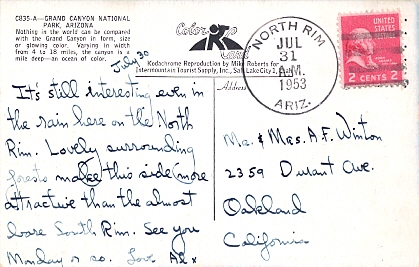 C835-A—GRAND CANYON NATIONAL
PARK, ARIZONA
Nothing in the world can be compared
with the Grand Canyon in form, size
or glowing color. Varying in width
from 4 to 18 miles, the canyon is a
mile deep—an ocean of color.
July 30
It's still interesting even in
the rain here on the North
Rim. Lovely surrounding
forests make this side (more
attractive than the almost
bare South Rim. See you
Monday or so. Love Al x
Kodachrome Reproduction by Mike Roberts for
Intermountain Tourist Supply, Inc., Salt Lake City 1, Utah
Address
NORTH RIM
JUL
31
A.M.
1953
ARIZ.
UNITED
STATES
POSTAGE
2 CENTS 2
Mr. & Mrs. A.F. Winton
2359 Durant Ave.
Oakland
California